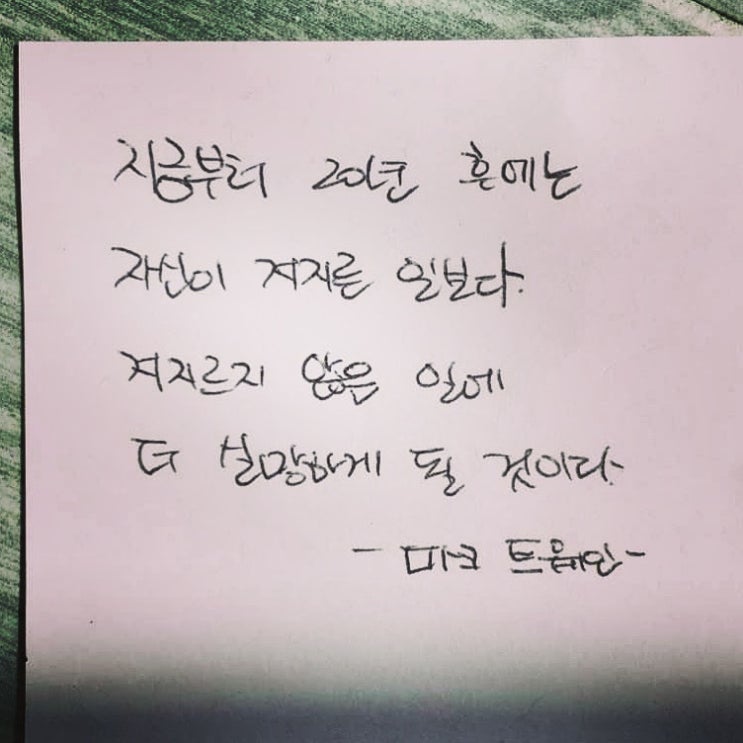 지금부터 20년 후에는
자신이 저지른 일보다
저지르지 않은 일에
더 실망하게 될 것이다
- 마크 트웨인 -